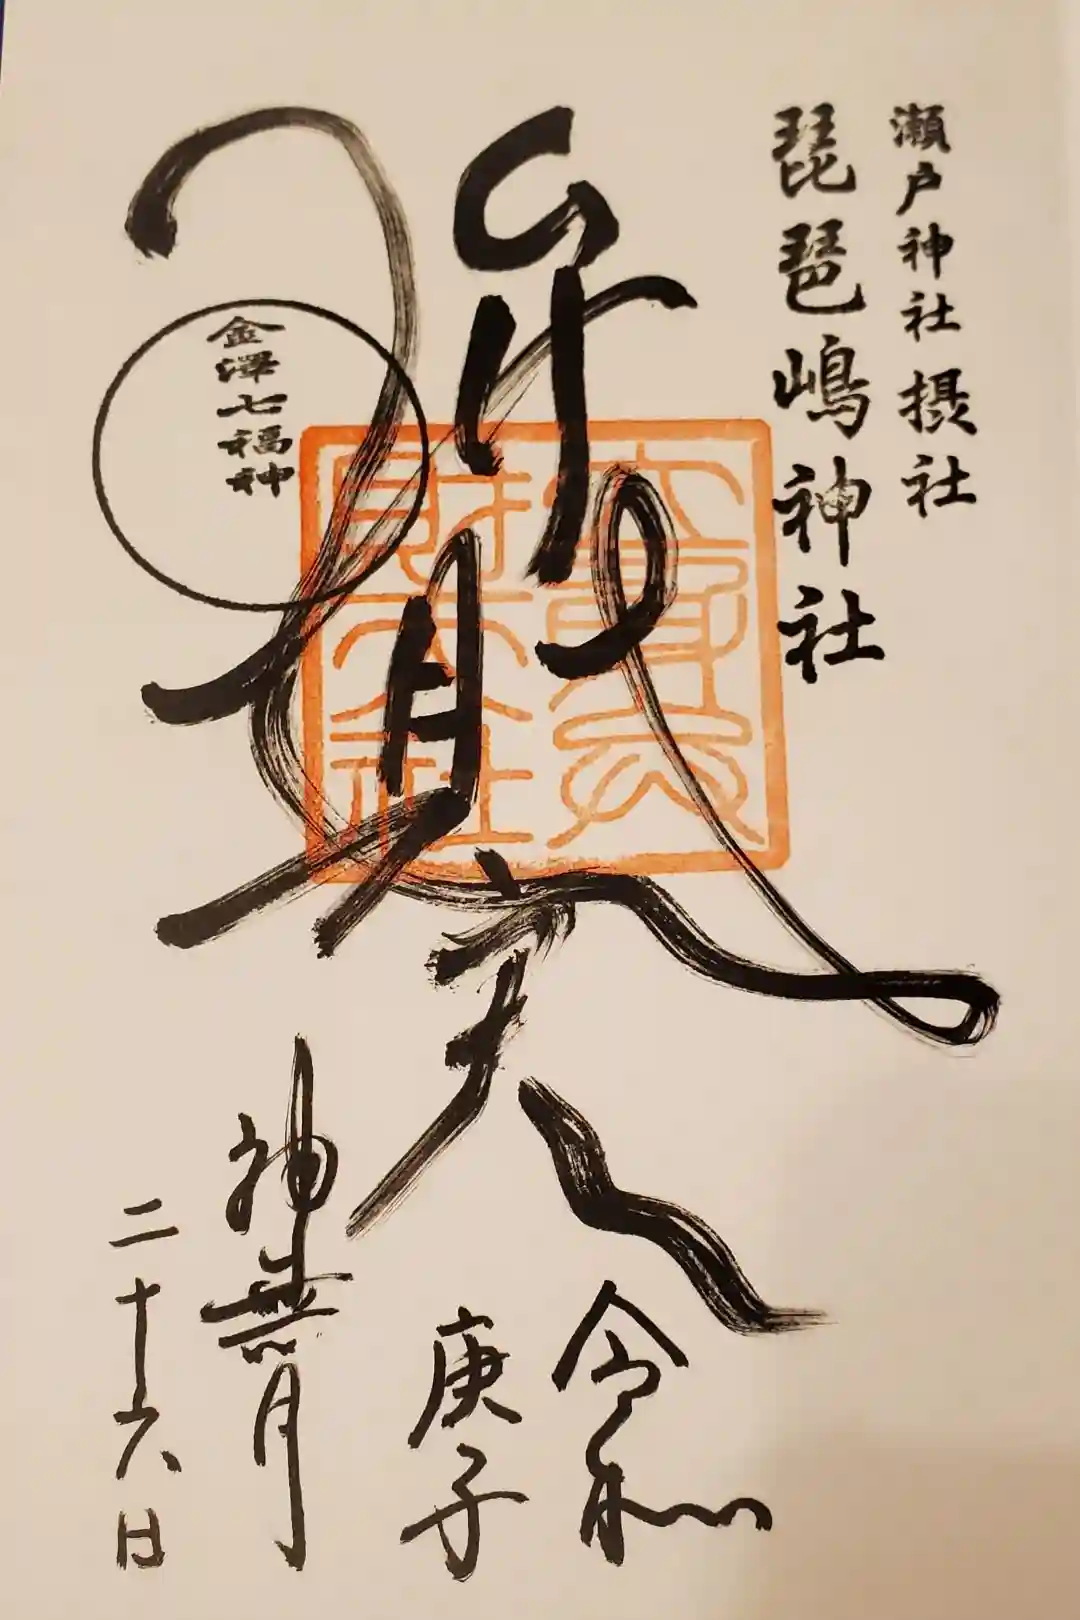 瀬戸神社摂社
琵琶嶋神社
弁財天
立身弁
財天社
金澤七福神
令和
庚子
神無月
二十六日